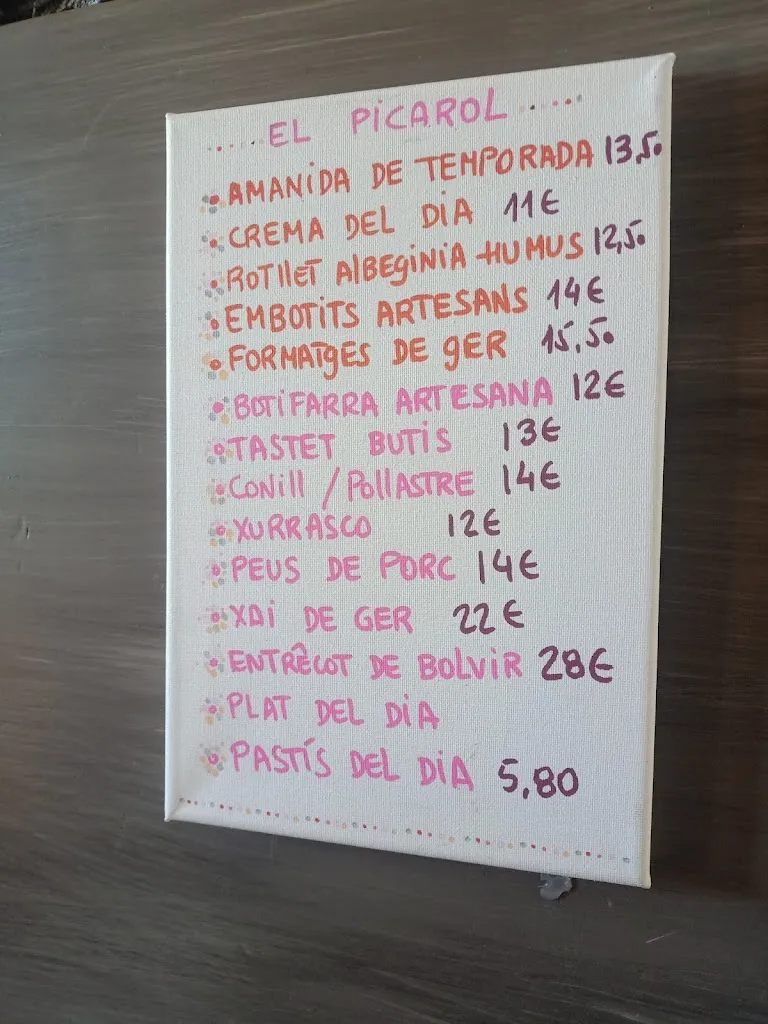 EL PICAROL
AMANIDA DE TEMPORADA 13,50
CREMA DEL DIA 11€
ROTLLET ALBEGINIA HUMUS 12,50
EMBOTITS ARTESANS 14€
FORMATGES DE GER 15,50
BOTIFARRA ARTESANA 12€
TASTET BUTIS 13€
CONILL / POLLASTRE 14€
XURRASCO 12€
PEUS DE PORC 14€
XAI DE GER 22€
ENTRÊCOT DE BOLVIR 28€
PLAT DEL DIA
PASTÍS DEL DIA 5,80